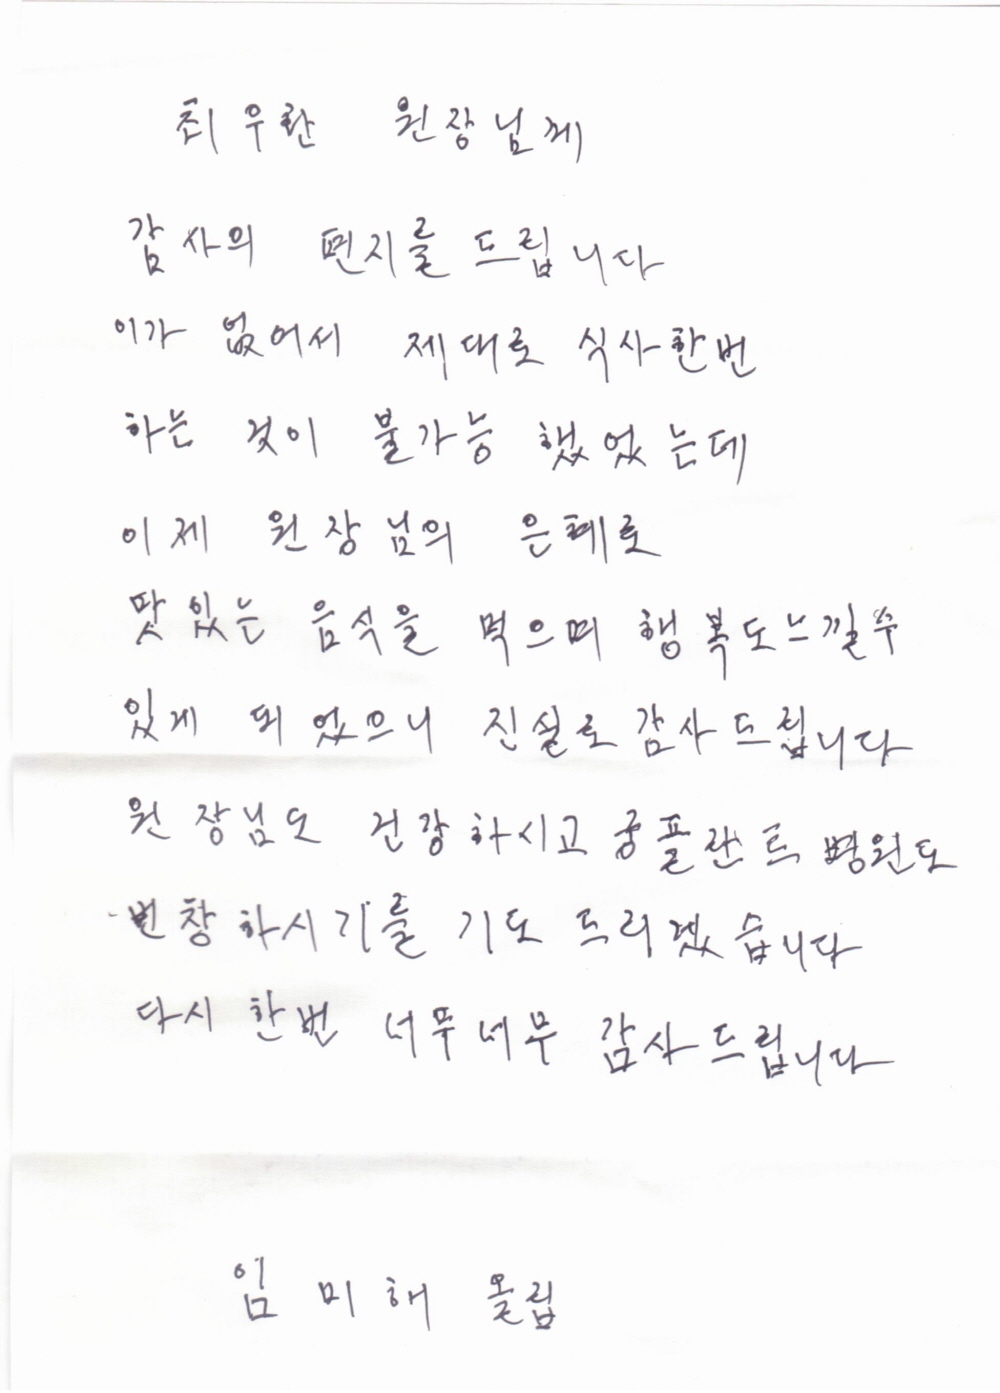 최우환 원장님께
감사의 편지를 드립니다
이가 없어서 제대로 식사한번
하는 것이 불가능 했었는데
이제 원장님의 은혜로
맛있는 음식을 먹으며 행복도느낄수
있게 되었으니 진실로 감사드립니다
원장님도 건강하시고 궁플란트 병원도
번창하시기를 기도 드리겠습니다
다시한번 너무너무 감사드립니다
임미해 올림